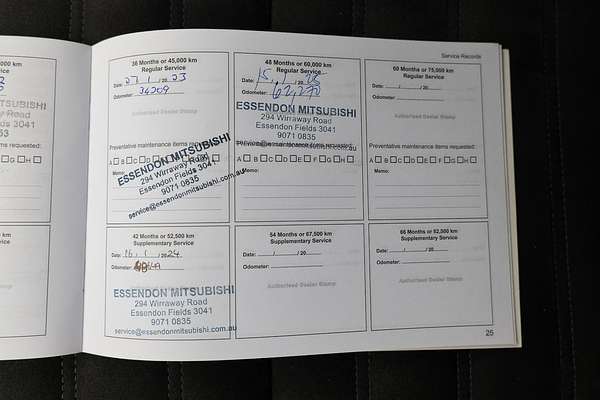 Service Records
,000 km
36 Months or 45,000 km
Regular Service
Date: 27 / 1 / 20 23
Odometer:
Authorised Dealer Stamp
Preventative maintenance items requested:
A B C D E F G H
Memo:
ESSENDON MITSUBISHI
294 Wirraway Road
Essendon Fields 3041
9071 0835
service@essendonmitsubishi.com.au
48 Months or 60,000 km
Regular Service
Date: 15 / 1 / 20
Odometer: 62,270
ESSENDON MITSUBISHI
294 Wirraway Road
Essendon Fields 3041
9071 0835
Preventative maintenance items requested:
A B C D E F G H
Memo:
60 Months or 75,000 km
Regular Service
Date: / / 20
Odometer:
Authorised Dealer Stamp
Preventative maintenance items requested:
A B C D E F G H
Memo:
00 km
42 Months or 52,500 km
Supplementary Service
Date: 16 / 1 / 20 24
Odometer:
ESSENDON MITSUBISHI
294 Wirraway Road
Essendon Fields 3041
9071 0835
service@essendonmitsubishi.com.au
54 Months or 67,500 km
Supplementary Service
Date: / / 20
Odometer:
Authorised Dealer Stamp
66 Months or 82,500 km
Supplementary Service
Date: / / 20
Odometer:
Authorised Dealer Stamp
25